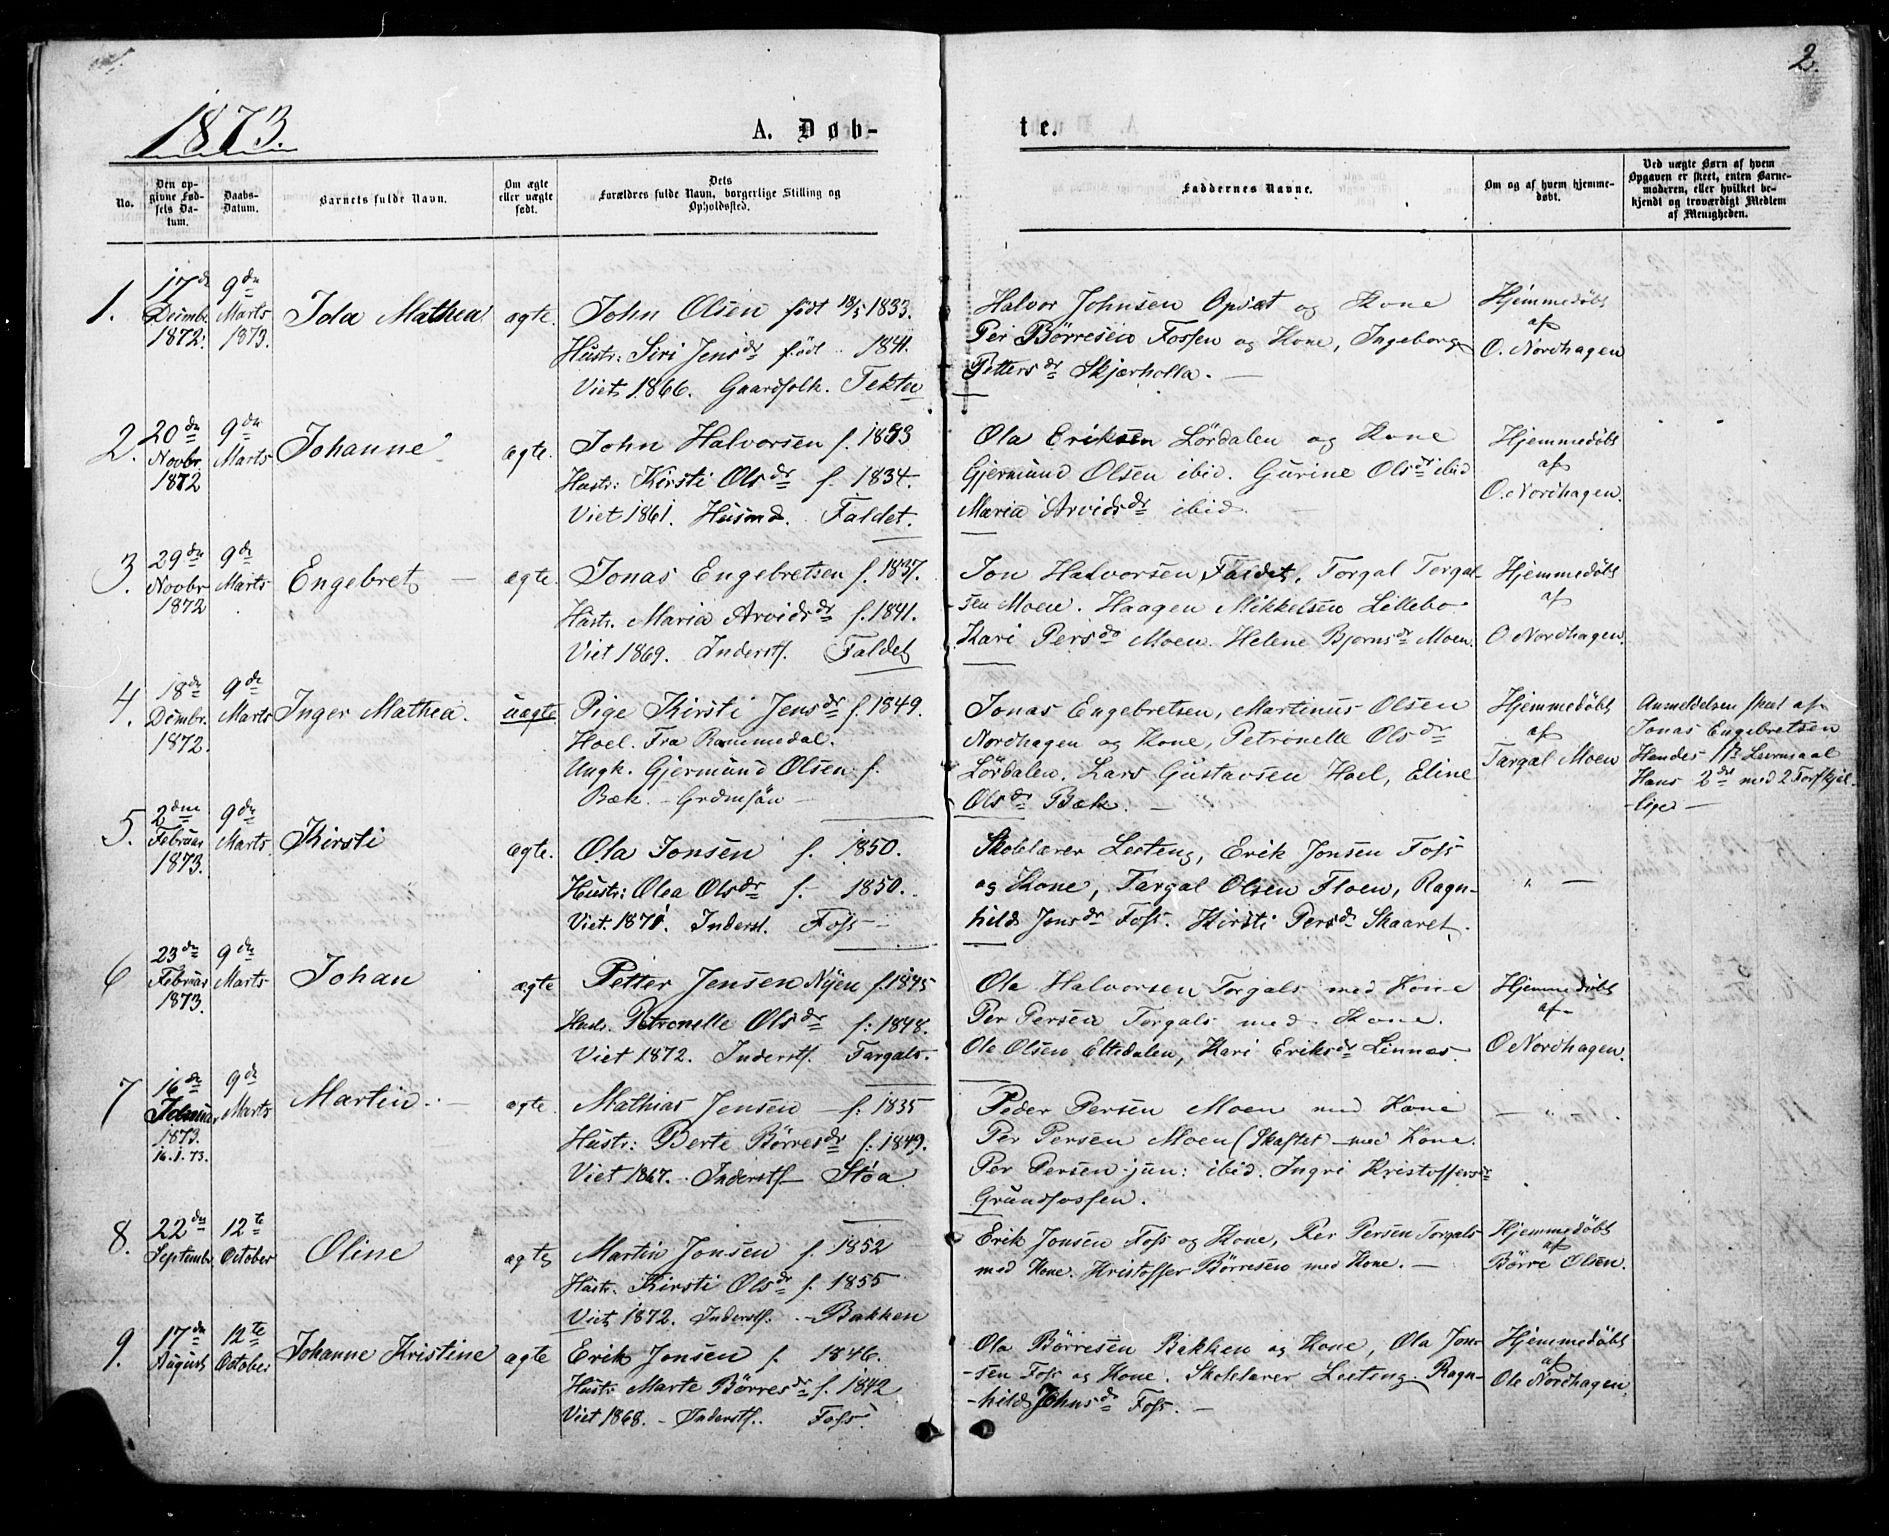 2.
1873.
A. Døb-
te.
No.
Den op-
givne Fød-
sels Da-
tum.
Daabs-
Datum.
Barnets fulde Navn.
Om ægte
eller uægte
født.
Dets
Forældres fulde Navn, borgerlige Stilling og
Opholdssted.
Faddernes Navne.
Om og af hvem hjemme-
døbt.
Ved uægte Børn af hvem
Opgaven er skeet, enten Barne-
moderen, eller hvilket be-
kjendt og troværdigt Medlem
af Menigheden.
1.
17de
Decembr.
1872.
9de
Marts
1873.
Ida Mathea
ægte.
John Olsen født 18/5 1833.
Hustr: Siri Jensdr født 1841.
Viet 1866. Gaardfolk.
Halvor Johnsen Opsæt og Kone
Per Börresen Fossen og Kone, Ingeborg
Pettersdr Skjærholla. —
Hjemmedøbt
af
O. Nordhagen
2.
20de
Novbr.
1872
9de
Marts
Johanne
ægte.
John Halvorsen f. 1833
Hustr: Kirsti Olsdr f. 1834.
Viet 1861. Husmd. Faldet.
Ola Eriksen Lördalen og Kone
Gjermund Olsen ibid. Gurine Olsdr ibid
Maria Arvidsdr ibid.
Hjemmedøbt
af
O. Nordhagen.
3.
29de
Novbr
1872
9de
Marts
Engebret —
ægte.
Jonas Engebretsen f. 1837.
Hustr. Maria Arvidsdr f. 1841.
Viet 1869. Inderstf. Faldet
Jon Halvorsen Faldet, Torgal Torgal-
-sen Moen. Haagen Mikkelsen Lillebo-
Kari Persdr Moen. Helene Bjørnsdr Moen.
Hjemmedøbt
af
O. Nordhagen.
4.
18de
Dcmbr.
1872.
9de
Marts
Inger Mathea.
uægte
Pige Kirsti Jensdr f. 1849.
Hoel. Fra Rommedal.
Ungk. Gjermund Olsen f.
Bæk. —
Jonas Engebretsen, Martinus Olsen
Nordhagen og Kone, Petronelle Olsdr
Lördalen. Lars Gustavsen Hoel, Eline
Olsdr Bæk. —
Hjemmedøbt
af
Targal Moen
Anmeldelsen skeet af
Jonas Engebretsen
Hendes 1ste Leiermaal
Hans 2det med 2 Forskjel-
-lige —
5.
2den
Februar
1873.
9de
Marts
Kirsti
ægte.
Ola Jonsen f. 1850.
Hustr: Olea Olsdr f. 1850.
Viet. 1871. Inderst. Foss —
Skolelærer Lesteng, Erik Jonsen Foss
og Kone, Targal Olsen Floen, Ragn-
hild Jonsdr Foss. Kirsti Persdr Skaaret.
" —
6
23de
Februar
1873.
9de
Marts
Johan
ægte
Petter Jensen Nÿen f. 1845
Hustr. Petronelle Olsdr f: 1848.
Viet 1872. Inderstf. Targals.
Ola Halvorsen Torgals med Kone
Per Persen Torgals med Kone.
Ole Olsen Ettedalen, Kari Eriksdr Linnæs
Hjemmedøbt
af
O Nordhagen.
7
16de
Januar
1873.
16.1.73.
9de
Marts
Martin. —
ægte.
Mathias Jensen — f: 1835
Hustr: Berte Börresdr f. 1849.
Viet 1867. Inderstf Stöa.
Peder Persen Moen med Kone
Per Persen Moen (Skaftet med Kone.
Per Persen jun: ibid. Ingri Kristoffersdr
Grundfossen.
— " —
8.
22de
Septembr.
12te
October
Oline
ægte
Martin Jonsen f. 1852
Hustr. Kirsti Olsdr f. 1855
Viet 1872. Inderstf. - Bakken
Erik Jonsen Foss og Kone, Per Persen Torgals
med Kone. Kristoffer Börresen med Kone. —
Hjemmedøbt
af
Börre Olsen.
9.
17de
August
12te
October
Johanne Kristine
ægte
Erik Jonsen f. 1846.
Hustr Marte Börresdr f. 1842
Viet 1868. - Inderstf. Foss.
Ola Börresen Bakken og Kone, Ola Jon-
-sen Foss og Kone. Skolelærer Lesteng. Ragn-
-hild Johnsdr Foss. —
Hjemmedøbt
af
Ole Nordhagen.